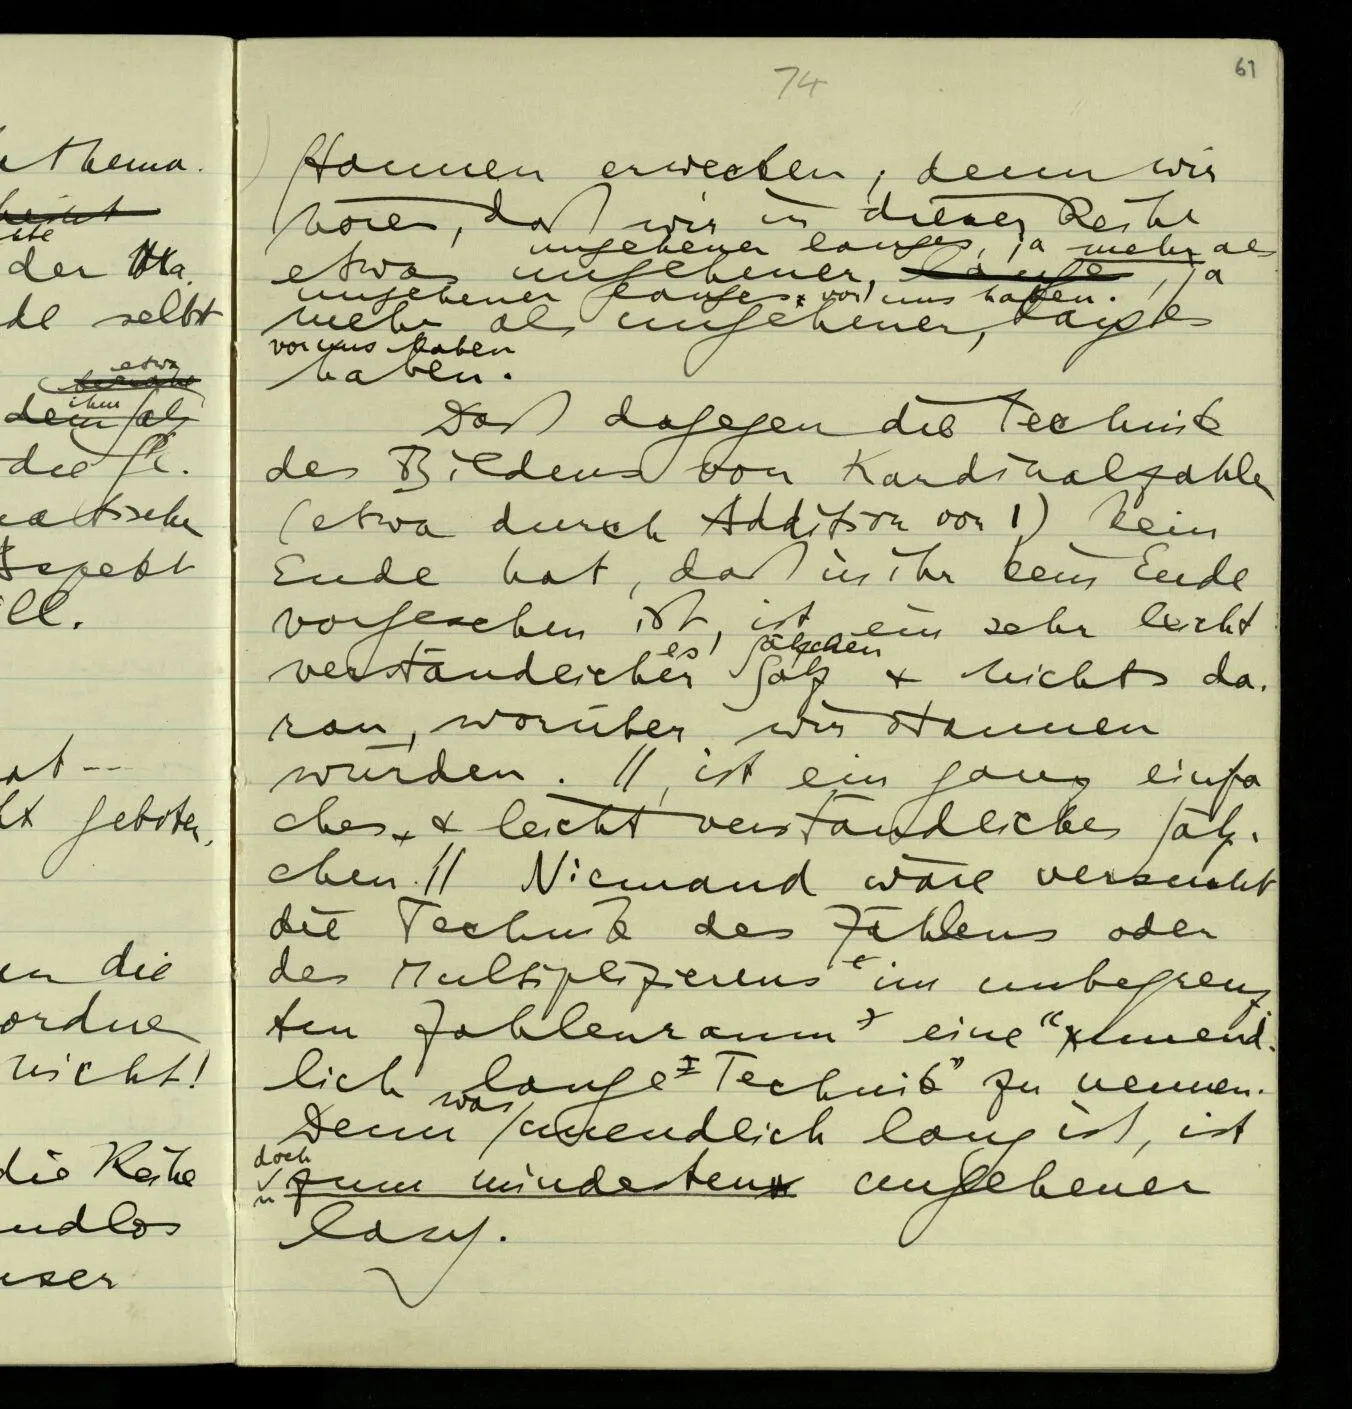 74
61
a thema.
der Ma
de selbst
etwa
dem als
ihm
die Gr.
matischer
Aspekt
ill.
at --
ht geboten,
en die
ordne
nicht!
die Reihe
endlos
unser
Staunen erwecken, denn wir
hören, daß wir in dieser Reihe
ungeheuer langes, ja mehr als
etwas ungeheuer, lange, ja
ungeheuer langes vor uns haben.
mehr als ungeheuer, langes
vor uns haben
haben.
Daß dagegen die Technik
des Bildens von Kardinalzahlen
(etwa durch Addition von 1) kein
Ende hat, daß in ihr kein Ende
vorgesehen ist, ist ein sehr leicht
es Sätzchen
verständlicher Satz & nichts da-
ran, worüber wir staunen
würden. // ist ein ganz einfa
ches & leicht verständliches Sätz-
chen. // Niemand wäre versucht
die Technik des Zählens oder
des Multiplizierens "im unbegrenz
ten Zahlenraum" eine "unend-
lich lange Technik" zu nennen.
was
Denn unendlich lang ist, ist
doch
zum mindesten ungeheuer
lang.